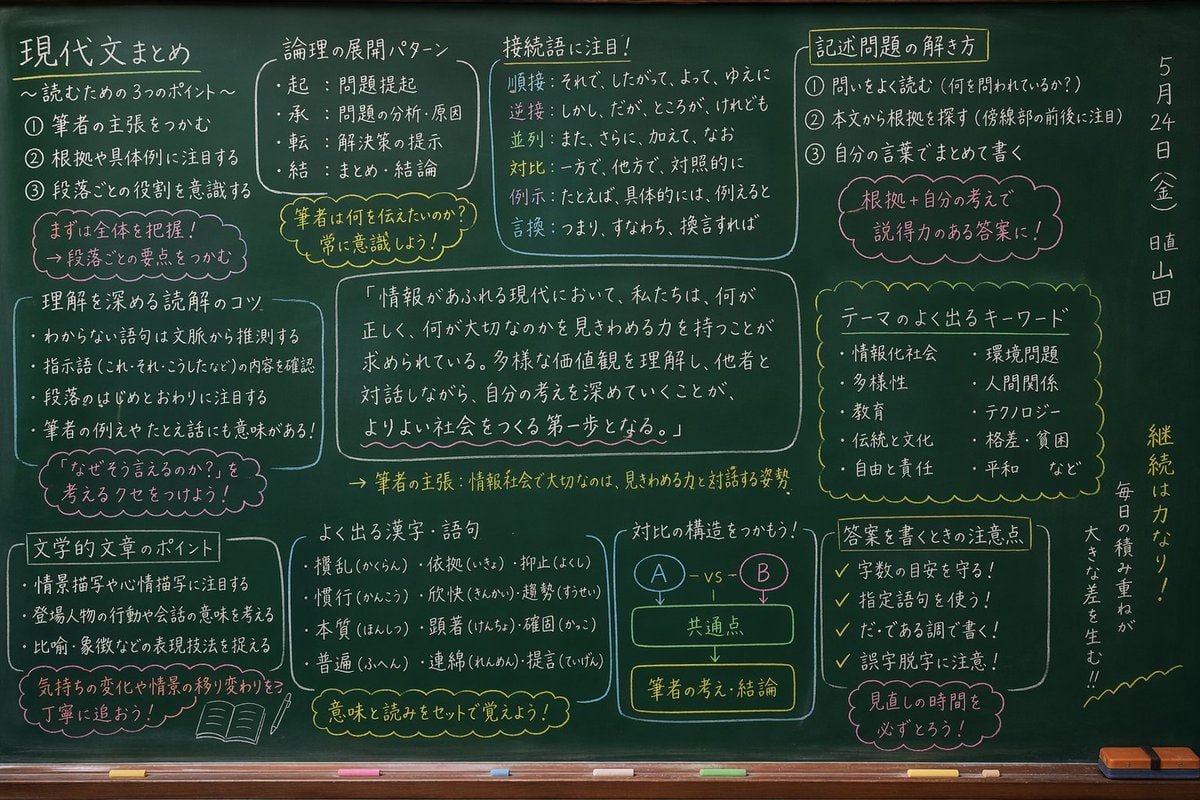 現代文まとめ
～読むための3つのポイント～
① 筆者の主張をつかむ
② 根拠や具体例に注目する
③ 段落ごとの役割を意識する
まずは全体を把握！
→段落ごとの要点をつかむ
論理の展開パターン
・起：問題提起
・承：問題の分析・原因
・転：解決策の提示
・結：まとめ・結論
筆者は何を伝えたいのか？
常に意識しよう！
接続語に注目！
順接：それで、したがって、よって、ゆえに
逆接：しかし、だが、ところが、けれども
並列：また、さらに、加えて、なお
対比：一方で、他方で、対照的に
例示：たとえば、具体的には、例えると
言換：つまり、すなわち、換言すれば
記述問題の解き方
① 問いをよく読む（何を問われているか？）
② 本文から根拠を探す（傍線部の前後に注目）
③ 自分の言葉でまとめて書く
根拠＋自分の考えで
説得力のある答案に！
5月24日（金）日直 山田
理解を深める読解のコツ
・わからない語句は文脈から推測する
・指示語（これ・それ・こうしたなど）の内容を確認
・段落のはじめとおわりに注目する
・筆者の例えやたとえ話にも意味がある！
「なぜそう言えるのか？」を
考えるクセをつけよう！
「情報があふれる現代において、私たちは、何が
正しく、何が大切なのかを見きわめる力を持つことが
求められている。多様な価値観を理解し、他者と
対話しながら、自分の考えを深めていくことが、
よりよい社会をつくる第一歩となる。」
→ 筆者の主張：情報社会で大切なのは、見きわめる力と対話する姿勢
テーマのよく出るキーワード
・情報化社会 ・環境問題
・多様性 ・人間関係
・教育 ・テクノロジー
・伝統と文化 ・格差・貧困
・自由と責任 ・平和 など
継続は力なり！
毎日の積み重ねが
大きな差を生む!!
文学的文章のポイント
・情景描写や心情描写に注目する
・登場人物の行動や会話の意味を考える
・比喩・象徴などの表現技法を捉える
気持ちの変化や情景の移り変わりを
丁寧に追おう！
よく出る漢字・語句
・攪乱(かくらん)・依拠(いきょ)・抑止(よくし)
・慣行(かんこう)・欣快(きんかい)・趨勢(すうせい)
・本質(ほんしつ)・顕著(けんちょ)・確固(かっこ)
・普遍(ふへん)・連綿(れんめん)・提言(ていげん)
意味と読みをセットで覚えよう！
対比の構造をつかもう！
A －vs－ B
共通点
筆者の考え・結論
答案を書くときの注意点
✓ 字数の目安を守る！
✓ 指定語句を使う！
✓ だ・である調で書く！
✓ 誤字脱字に注意！
見直しの時間を
必ずとろう！